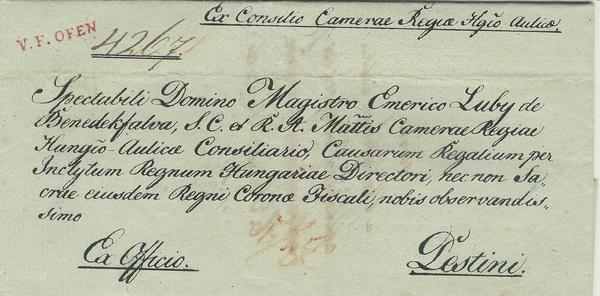 Ex Consilio Camerae Regiæ Hgīo Aulicæ,
V. F. OFEN
4267
Spectabili Domino Magistro Emerico Luby de
Benedekfalva, S. C. et R. A. Mattīs Camerae Regiae
Hungīo-Aulicæ Consiliario, Causarum Regalium per
Inclytum Regnum Hungariae Directori, nec non Sa„
crae eiusdem Regni Coronæ Fiscali, nobis observandis„
simo
Ex Officio.
Pestini.